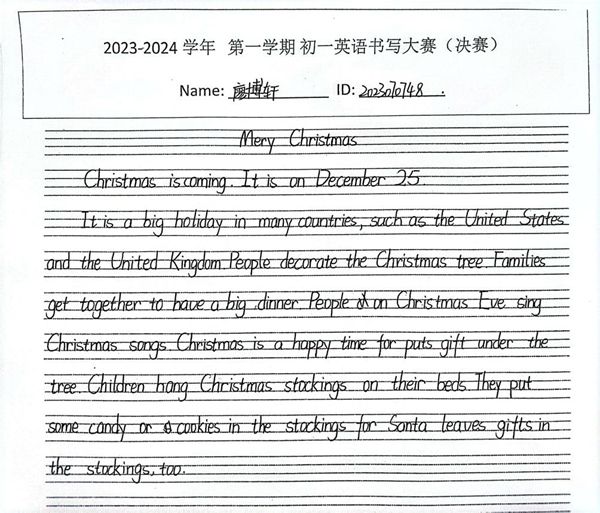 2023-2024 学年 第一学期 初一英语书写大赛（决赛）
Name: 廖博轩 ID: 2023070748 .
Mery Christmas
Christmas is coming. It is on December 25.
It is a big holiday in many countries, such as the United States
and the United Kingdom. People decorate the Christmas tree. Families
get together to have a big dinner. People on Christmas Eve sing
Christmas songs. Christmas is a happy time for puts gift under the
tree. Children hang Christmas stockings on their beds. They put
some candy or cookies in the stockings for Santa leaves gifts in
the stockings, too.